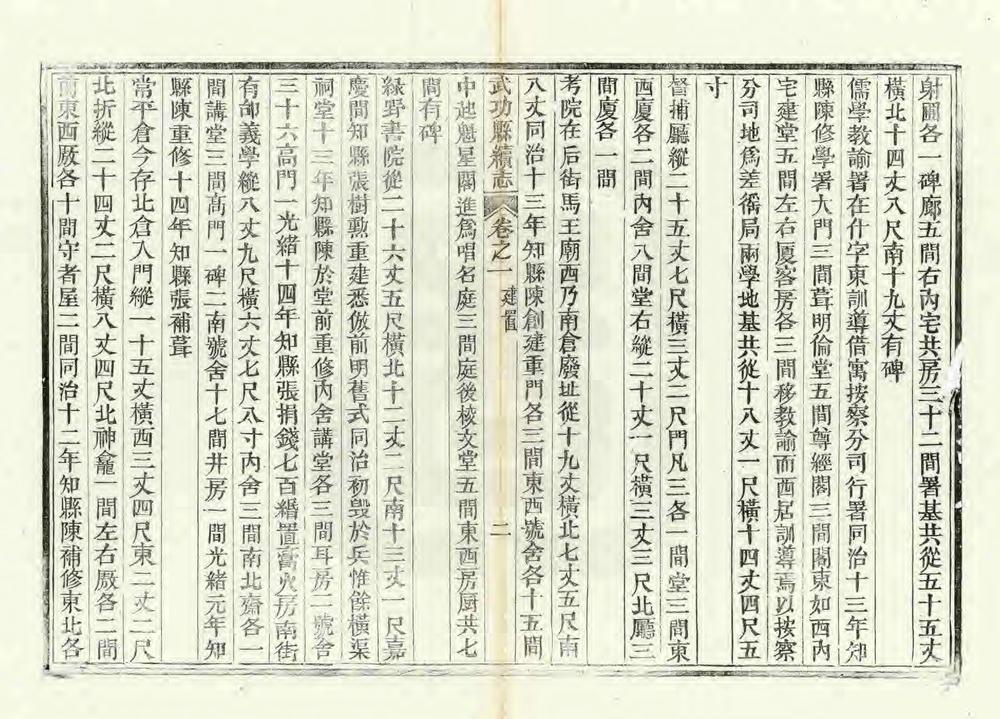 射圃各一碑廊五間右內宅共房三十二間署基共從五十五丈
橫北十四丈八尺南十九丈有碑
儒學教諭署在什字東訓導借寓按察分司行署同治十三年知
縣陳修學署大門三間葺明倫堂五間尊經閣三間閣東如西內
宅建堂五間左右厦客房各三間移教諭而西居訓導焉以按察
分司地爲差徭局兩學地基共從十八丈一尺橫十四丈四尺五
寸
督捕廳縱二十五丈七尺橫三丈二尺門凡三各一間堂三間東
西廈各二間內舍八間堂右縱二十丈一尺橫三丈三尺北廳三
間廈各一間
考院在后街馬王廟西乃南倉廢址從十九丈橫北七丈五尺南
八丈同治十三年知縣陳創建重門各三間東西號舍各十五間
武功縣續志
卷之一
建置
二
中起魁星閣進爲唱名庭三間庭後校文堂五間東西房厨共七
間有碑
綠野書院從二十六丈五尺橫北十二丈二尺南十三丈一尺嘉
慶間知縣張樹勲重建悉倣前明舊式同治初毀於兵惟餘橫渠
祠堂十三年知縣陳於堂前重修內舍講堂各三間耳房二號舍
三十六高門一光緒十四年知縣張捐錢七百緡置膏火房南街
有邰義學縱八丈九尺橫六丈七尺八寸內舍三間南北齋各一
間講堂三間髙門一碑二南號舍十七間井房一間光緒元年知
縣陳重修十四年知縣張補葺
常平倉今存北倉入門縱一十五丈橫西三丈四尺東二丈二尺
北折縱二十四丈二尺橫八丈四尺北神龕一間左右厫各二間
前東西厫各十間守者屋二間同治十二年知縣陳補修東北各